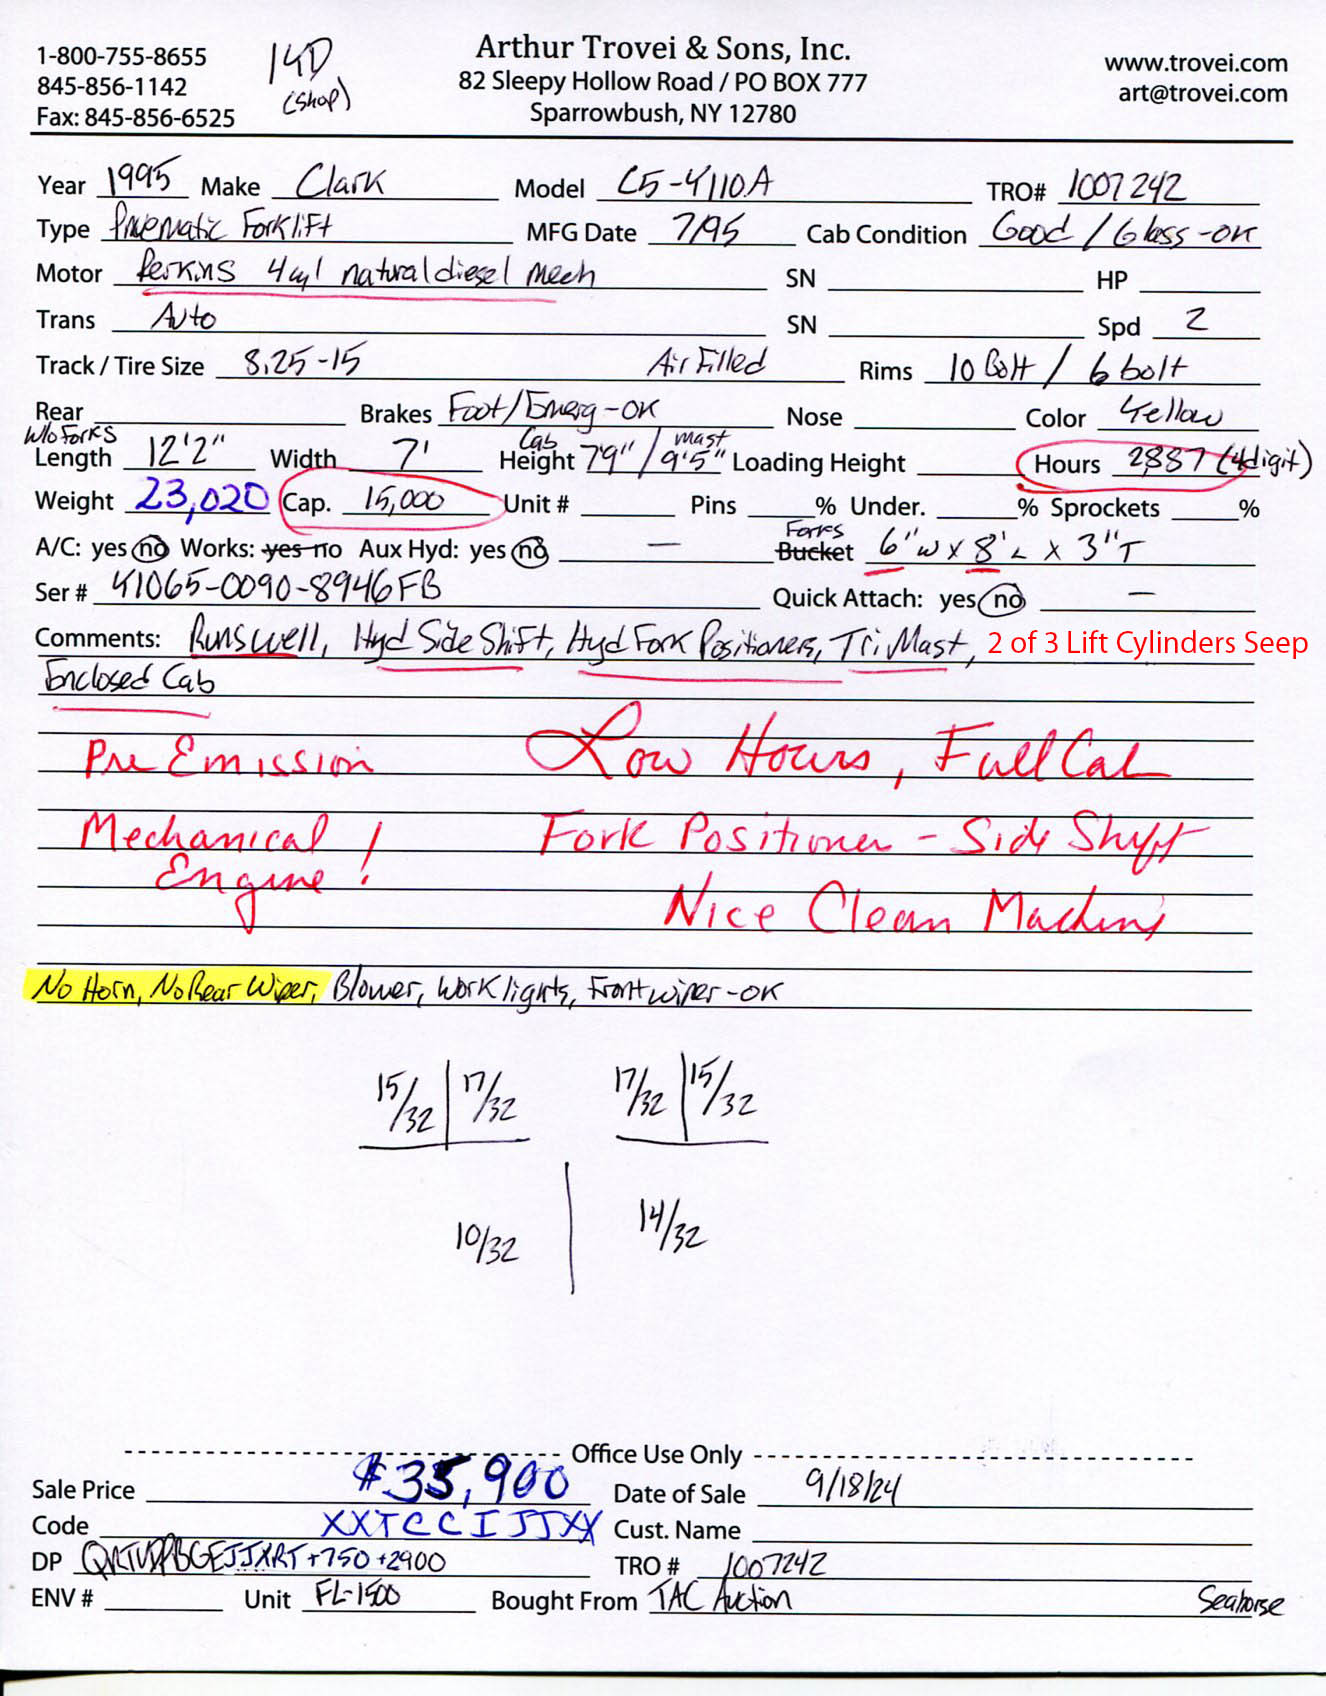 1-800-755-8655
845-856-1142
Fax: 845-856-6525
(shop)
Arthur Trovei & Sons, Inc.
82 Sleepy Hollow Road / PO BOX 777
Sparrowbush, NY 12780
www.trovei.com
art@trovei.com
Year 1995 Make Clark Model C5-Y110A TRO# 1007242
Type Pnuematic Forklift MFG Date 7/95 Cab Condition Good / Glass-OK
Motor Perkins 4cyl natural diesel mech SN HP
Trans Auto SN Spd 2
Track / Tire Size 8.25-15 Air Filled Rims 10 Bolt / 6 bolt
Rear Brakes Foot/Emerg-OK Nose Color Yellow
w/o Forks Cab mast
Length 12'2" Width 7' Height 7'9" / 9'5" Loading Height Hours 2887 (4digit)
Weight 23,020 Cap. 15,000 Unit # Pins % Under. % Sprockets %
Forks
A/C: yes no Works: yes no Aux Hyd: yes no — Bucket 6"W x 8'L x 3"T
Ser # Y1065-0090-8946FB Quick Attach: yes no —
Comments: Runs well, Hyd Side Shift, Hyd Fork Positioners, Tri Mast, 2 of 3 Lift Cylinders Seep
Enclosed Cab
Pre Emission Low Hours, Full Cab
Mechanical Fork Positioner - Side Shift
Engine! Nice Clean Machine
No Horn, No Rear Wiper, Blower, Work lights, Front wiper-OK
15/32 17/32 17/32 15/32
10/32 14/32
Office Use Only
Sale Price $35,900 Date of Sale 9/18/24
Code XXTCCIJJXX Cust. Name
DP +750 +2900 TRO # 1007242
ENV # Unit FL-1500 Bought From TAC Auction Seahorse